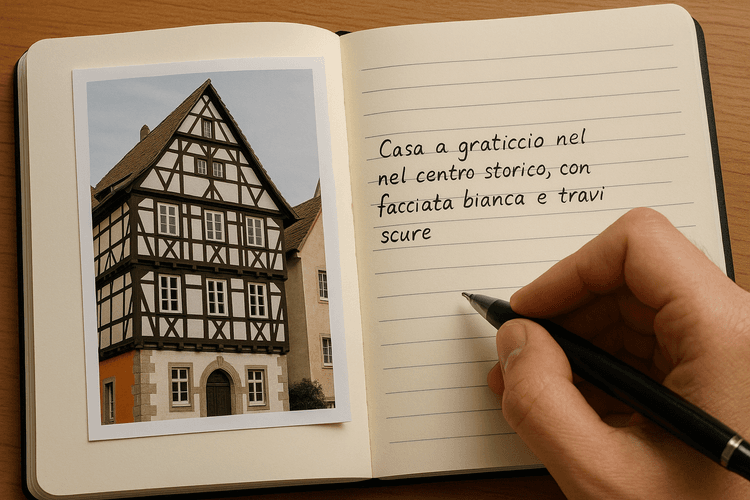 Casa a graticcio nel
nel centro storico, con
facciata bianca e travi
scure